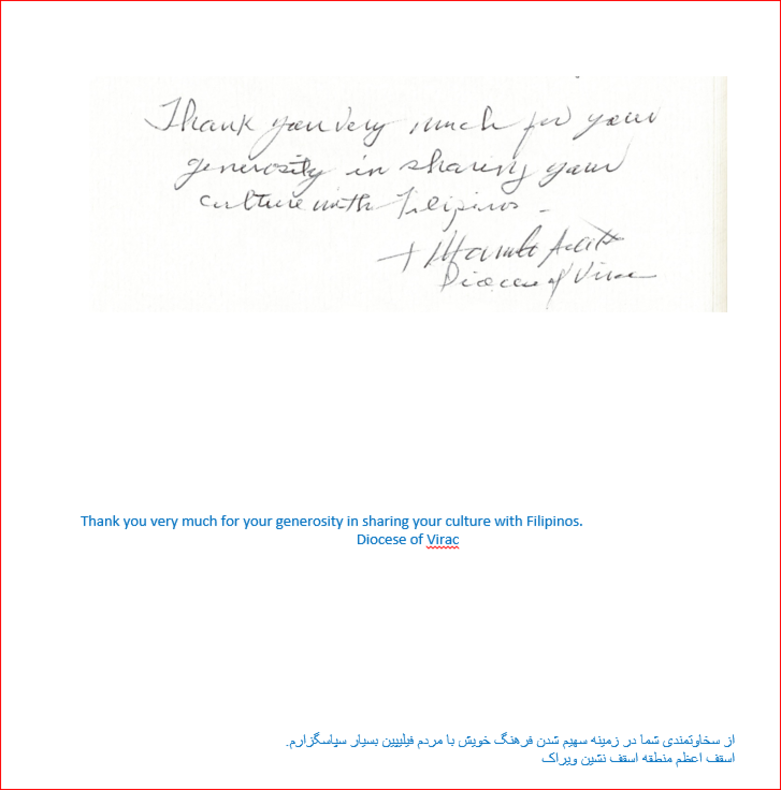 Thank you very much for your
generosity in sharing your
culture with Filipinos -
+
Diocese of Virac
Thank you very much for your generosity in sharing your culture with Filipinos.
Diocese of Virac
از سخاوتمندی شما در زمینه سهیم شدن فرهنگ خویش با مردم فیلیپین بسیار سپاسگزارم.
اسقف اعظم منطقه اسقف نشین ویراک